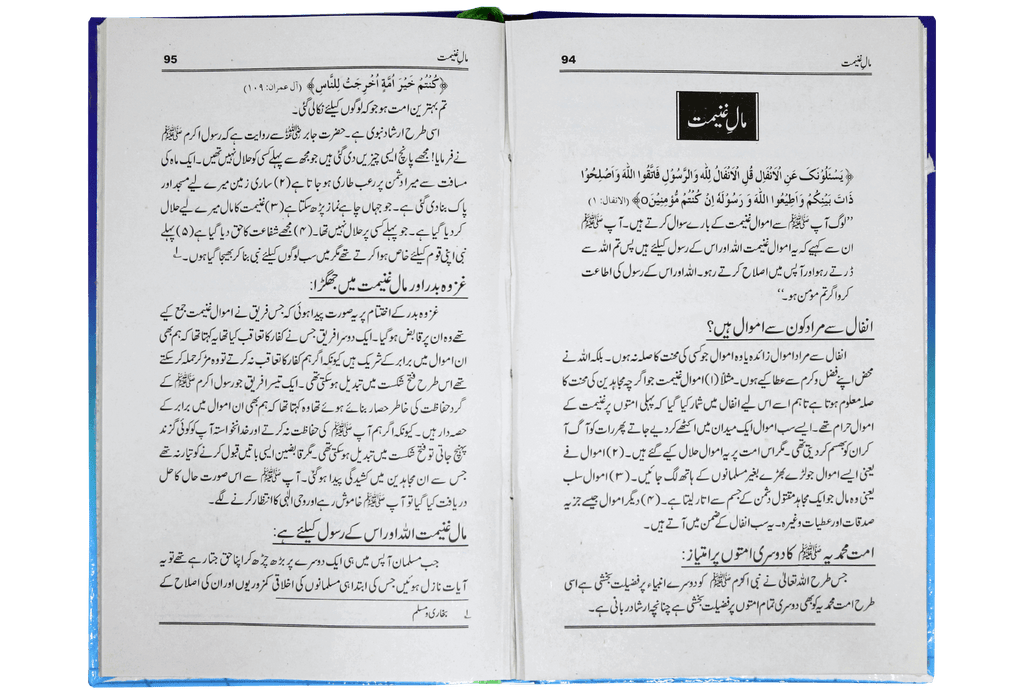 مال غنیمت 94
مالِ غنیمت
﴿یَسْئَلُوْنَکَ عَنِ الْاَنْفَالِ قُلِ الْاَنْفَالُ لِلّٰہِ وَالرَّسُوْلِ فَاتَّقُوا اللّٰہَ وَاَصْلِحُوْا
ذَاتَ بَیْنِکُمْ وَاَطِیْعُوا اللّٰہَ وَ رَسُوْلَہٗ اِنْ کُنْتُمْ مُّؤْمِنِیْنَ○﴾ (الانفال: ۱)
”لوگ آپ ﷺ سے اموال غنیمت کے بارے سوال کرتے ہیں۔ آپ ﷺ
ان سے کہیے کہ یہ اموال غنیمت اللہ اور اس کے رسول کیلئے ہیں پس تم اللہ سے
ڈرتے رہو اور آپس میں اصلاح کرتے رہو۔ اللہ اور اس کے رسول کی اطاعت
کرو اگر تم مومن ہو۔“
انفال سے مراد کون سے اموال ہیں؟
انفال سے مراد اموال زائدہ یا وہ اموال جو کسی کی محنت کا صلہ نہ ہوں۔ بلکہ اللہ نے
محض اپنے فضل و کرم سے عطا کیے ہوں۔ مثلاً (۱) اموال غنیمت جو اگرچہ مجاہدین کی محنت کا
صلہ معلوم ہوتا ہے تاہم اسے اس لیے انفال میں شمار کیا گیا کہ پہلی امتوں پر غنیمت کے
اموال حرام تھے۔ ایسے سب اموال ایک میدان میں اکٹھے کر دیے جاتے پھر رات کو آگ آ
کر ان کو بھسم کر دیتی تھی۔ مگر اس امت پر یہ اموال حلال کیے گئے ہیں۔ (۲) اموال فے
یعنی ایسے اموال جو لڑے بھڑے بغیر مسلمانوں کے ہاتھ لگ جائیں۔ (۳) اموال سلب
یعنی وہ مال جو ایک مجاہد مقتول دشمن کے جسم سے اتار لیتا ہے۔ (۴) دیگر اموال جیسے جزیہ
صدقات اور عطیات وغیرہ۔ یہ سب انفال کے ضمن میں آتے ہیں۔
امت محمدیہ ﷺ کا دوسری امتوں پر امتیاز:
جس طرح اللہ تعالیٰ نے نبی اکرم ﷺ کو دوسرے انبیاء پر فضیلت بخشی ہے اسی
طرح امت محمدیہ کو بھی دوسری تمام امتوں پر فضیلت بخشی ہے چنانچہ ارشاد ربانی ہے۔
مال غنیمت 95
﴿کُنْتُمْ خَیْرَ اُمَّۃٍ اُخْرِجَتْ لِلنَّاسِ﴾ (آل عمران: ۱۰۹)
تم بہترین امت ہو جو کہ لوگوں کیلئے نکالی گئی۔
اسی طرح ارشاد نبوی ہے۔ حضرت جابر ؓ سے روایت ہے کہ رسول اکرم ﷺ
نے فرمایا! مجھے پانچ ایسی چیزیں دی گئی ہیں جو مجھ سے پہلے کسی کو حلال نہیں تھیں۔ ایک ماہ کی
مسافت سے میرا دشمن پر رعب طاری ہو جاتا ہے (۲) ساری زمین میرے لیے مسجد اور
پاک بنا دی گئی ہے۔ جو جہاں چاہے نماز پڑھ سکتا ہے (۳) غنیمت کا مال میرے لیے حلال
کر دیا گیا ہے۔ جو پہلے کسی پر حلال نہیں تھا۔ (۴) مجھے شفاعت کا حق دیا گیا ہے (۵) پہلے
نبی اپنی قوم کیلئے خاص ہوا کرتے تھے مگر میں سب لوگوں کیلئے نبی بنا کر بھیجا گیا ہوں۔ ۱ے
غزوہ بدر اور مال غنیمت میں جھگڑا:
غزوہ بدر کے اختتام پر یہ صورت پیدا ہوئی کہ جس فریق نے اموال غنیمت جمع کیے
تھے وہ ان پر قابض ہو گیا۔ ایک دوسرا فریق جس نے کفار کا تعاقب کیا تھا یہ کہتا تھا کہ ہم بھی
ان اموال میں برابر کے شریک ہیں کیونکہ اگر ہم کفار کا تعاقب نہ کرتے تو وہ مڑ کر حملہ کر سکتے
تھے اس طرح فتح شکست میں تبدیل ہو سکتی تھی۔ ایک تیسرا فریق جو رسول اکرم ﷺ کے
گرد حفاظت کی خاطر حصار بنائے ہوئے تھا وہ کہتا تھا کہ ہم بھی ان اموال میں برابر کے
حصہ دار ہیں۔ کیونکہ اگر ہم آپ ﷺ کی حفاظت نہ کرتے اور خدانخواستہ آپ کو کوئی گزند
پہنچ جاتی تو فتح شکست میں تبدیل ہو سکتی تھی۔ مگر قابضین ایسی باتیں قبول کرنے کو تیار نہ تھے
جس سے ان مجاہدین میں کشیدگی پیدا ہو گئی۔ آپ ﷺ سے اس صورت حال کا حل
دریافت کیا گیا تو آپ ﷺ خاموش رہے اور وحی الٰہی کا انتظار کرنے لگے۔
مال غنیمت اللہ اور اس کے رسول کیلئے ہے:
جب مسلمان آپس میں ہی ایک دوسرے پر بڑھ چڑھ کر اپنا حق جتا رہے تھے تو یہ
آیات نازل ہوئیں جس کی ابتدا ہی مسلمانوں کی اخلاقی کمزوریوں اور ان کی اصلاح کے
۱ے بخاری و مسلم